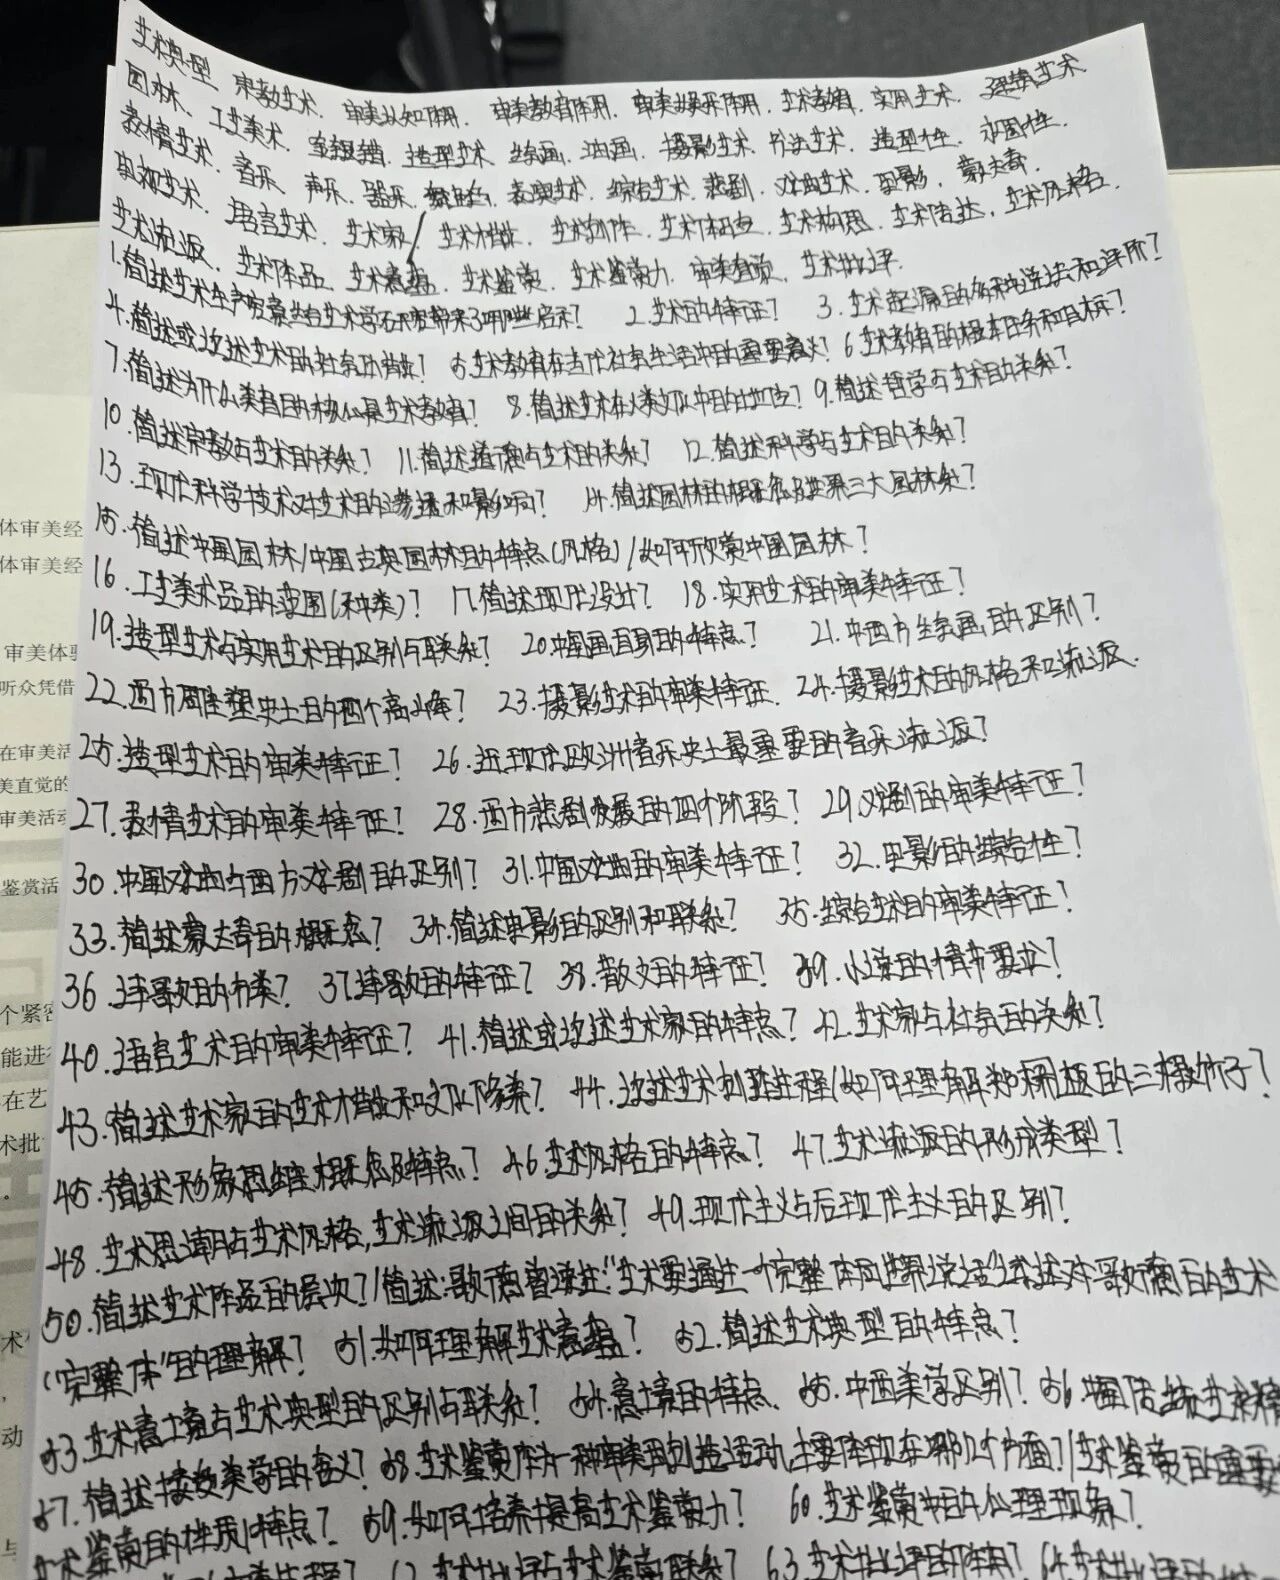 艺术典型、宗教艺术、审美认知作用、审美教育作用、审美娱乐作用、艺术教育、实用艺术、建筑艺术
园林、工艺美术、造型艺术、绘画、油画、摄影艺术、书法艺术、造型性、永固性、
表情艺术、音乐、声乐、器乐、表演艺术、综合艺术、悲剧、戏曲艺术、电影、蒙太奇、
电视艺术、语言艺术、艺术家、艺术才能、艺术创作、艺术构思、艺术传达、艺术风格、
艺术流派、艺术作品、艺术意蕴、艺术鉴赏、艺术鉴赏力、审美直觉、艺术批评.
1.简述艺术生产观念给艺术学研究带来了哪些启示? 2.艺术的特征? 3.艺术起源的各种说法和评价?
4.简述或论述艺术的社会功能? 5.艺术教育在当代社会生活中的重要意义? 6.艺术教育的根本任务和目标?
7.简述为什么美育的核心是艺术教育? 8.简述艺术在人类文化中的地位? 9.简述哲学与艺术的关系?
10.简述宗教与艺术的关系? 11.简述道德与艺术的关系? 12.简述科学与艺术的关系?
13.现代科学技术对艺术的渗透和影响? 14.简述园林的概念及世界三大园林系?
15.简述中国园林/中国古典园林的特点(风格)/如何欣赏中国园林?
16.工艺美术品的范围(种类)? 17.简述现代设计? 18.实用艺术的审美特征?
19.造型艺术与实用艺术的区别与联系? 20.中国画自身的特点? 21.中西方绘画的区别?
22.西方雕塑史上的四个高峰? 23.摄影艺术的审美特征. 24.摄影艺术的风格和流派.
25.造型艺术的审美特征? 26.近现代欧洲音乐史上最重要的音乐流派?
27.表情艺术的审美特征? 28.西方悲剧发展的四个阶段? 29.戏剧的审美特征?
30.中国戏曲与西方戏剧的区别? 31.中国戏曲的审美特征? 32.电影的综合性?
33.简述蒙太奇的概念? 34.简述电影的区别和联系? 35.综合艺术的审美特征?
36.诗歌的分类? 37.诗歌的特征? 38.散文的特征? 39.小说的情节要求?
40.语言艺术的审美特征? 41.简述或论述艺术家的特点? 42.艺术家与社会的关系?
43.简述艺术家的艺术才能和文化修养? 44.论述艺术创造过程(如何理解郑板桥的三种竹子?
45.简述形象思维概念及特点? 46.艺术风格的特点? 47.艺术流派的形成类型?
48.艺术思潮与艺术风格,艺术流派之间的关系? 49.现代主义与后现代主义的区别?
50.简述艺术作品的层次?/简述:歌德曾说过:"艺术要通过一个完整体向世界说话"试述对歌德的艺术
"完整体"的理解? 51.如何理解艺术意蕴? 52.简述艺术典型的特点?
53.艺术意境与艺术典型的区别与联系? 54.意境的特点. 55.中西美学区别? 56.中国传统艺术精
57.简述接受美学的含义? 58.艺术鉴赏作为一种审美再创造活动,主要体现在哪几个方面?/艺术鉴赏的重要
艺术鉴赏的性质/特点? 59.如何培养提高艺术鉴赏力? 60.艺术鉴赏中的心理现象?
艺术批评与艺术鉴赏联系? 63.艺术批评的作用? 64.艺术批评